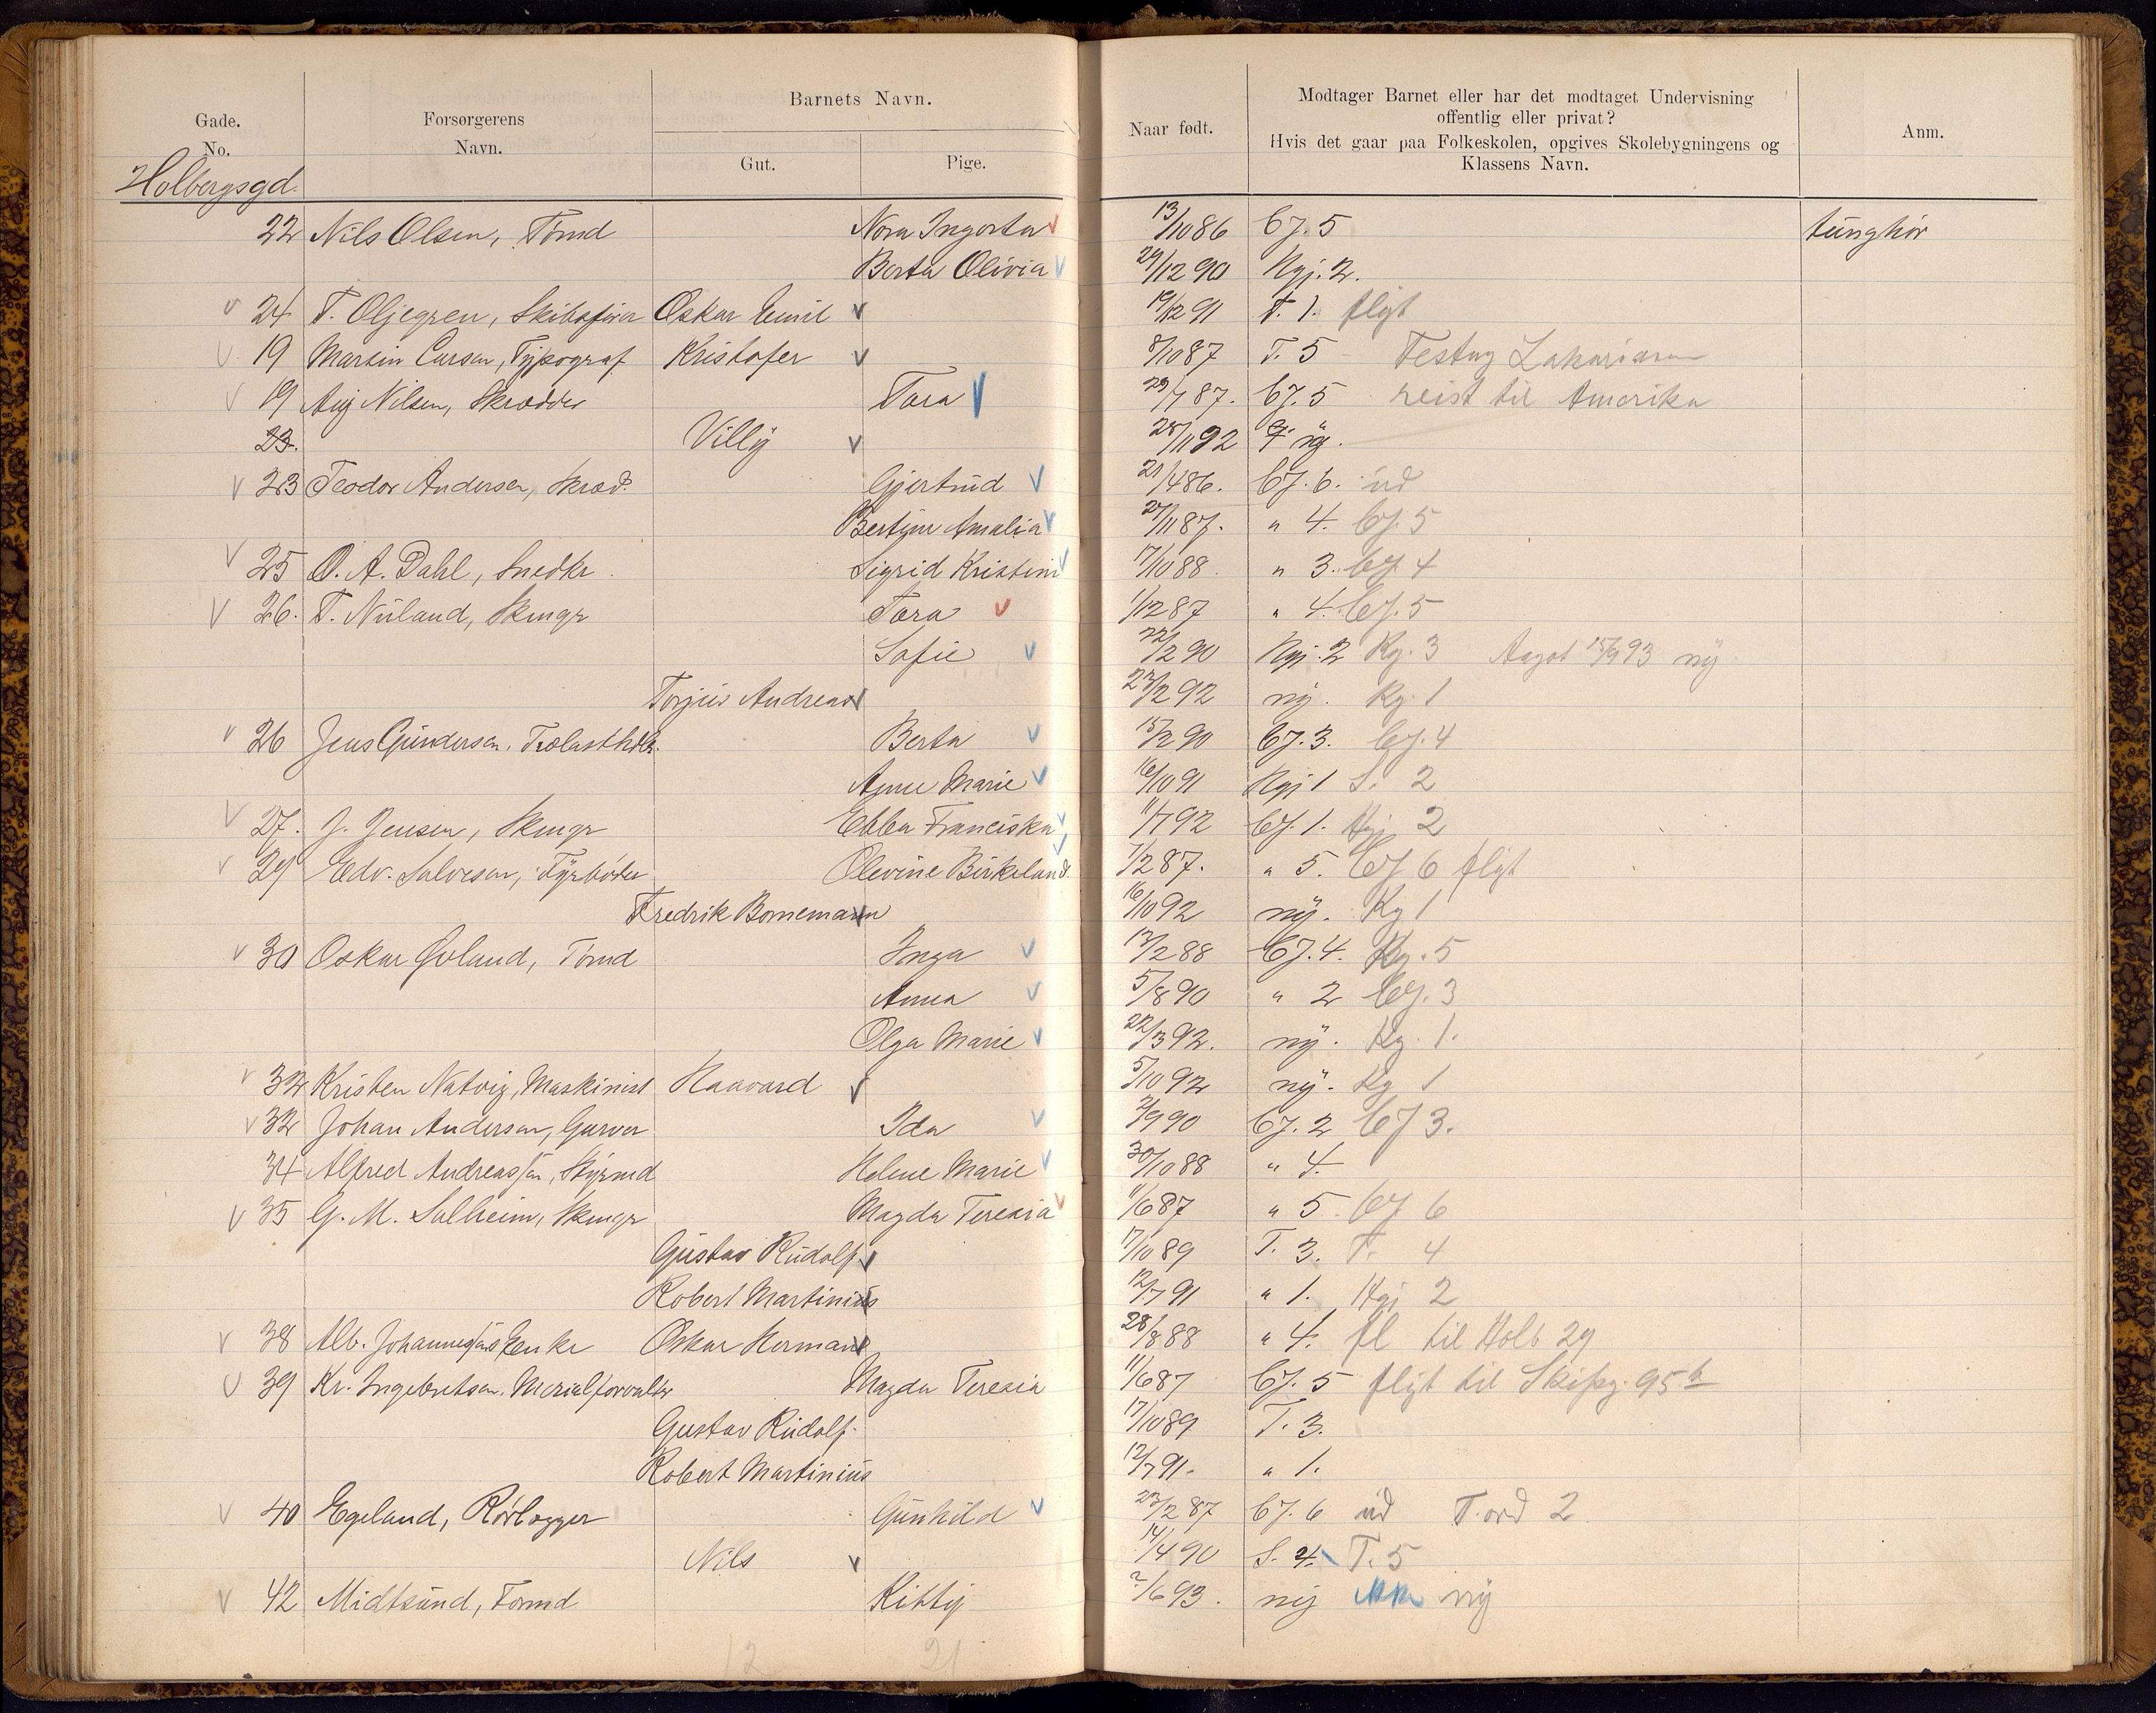 Gade.
No.
Forsørgerens
Navn.
Barnets Navn.
Gut.
Pige.
Naar født.
Modtager Barnet eller har det modtaget Undervisning
offentlig eller privat?
Hvis det gaar paa Folkeskolen, opgives Skolebygningens og
Klassens Navn.
Anm.
Holbergsgd.
22 Nils Olsen, Tømd Nora Ingerta 13/10 86 Cj. 5 tunghør
Berta Olivia 29/12 90 Ngj. 2.
24 T. Oljegren, Skibsfører Oskar Emil 19/12 91 T. 1. flyt
19 Martin Larsen, Typograf Kristofer 8/10 87 T. 5
19 Aug Nilsen, Skrædder Tora 29/7 87. Cj. 5 reist til Amerika
23. Villy 28/11 92 ny.
23 Teodor Andersen, Skræd. Gjertrud 21/4 86. Cj. 6. ud
Bertine Amalia 27/11 87. " 4. Cj. 5
25 O. A. Dahl, Snedkr Sigrid Kristine 17/10 88. " 3. Cj. 4
26. T. Nuland, Skmgr Tora 1/12 87 " 4. Cj. 5
Sofie 22/2 90 Ngj. 2 Kg. 3 Aagot 15/9 93 ny
Torjus Andreas 27/2 92 ny. Kg. 1
26 Jens Gundersen. Trælasthdlr. Berta 15/2 90 Cj. 3. Cj. 4
Anne Marie 16/10 91 Ngj 1 S. 2
27. J. Jensen, Skmgr Ebba Franciska 11/7 92 Cj. 1. Hgj 2
29 Edv. Salvesen, Fyrbøder Olevine Birkeland. 7/2 87. " 5. Cj 6 flyt
Fredrik Bornemann 16/10 92 ny. Kg 1
30 Oskar Øvland, Tømd Inga 17/2 88 Cj. 4. Kg. 5
Anna 5/8 90 " 2 Cj. 3
Olga Marie 22/3 92. ny. Kg. 1.
32 Kristen Natvig, Maskinist Haavard 5/10 92 ny. Kg 1
32 Johan Andersen, Garver Ida 2/9 90 Cj. 2 Cj 3.
34 Alfred Andreassen, Styrmd Helene Marie 30/10 88 " 4.
35 G. M. Solheim, Skmgr Magda Teresia 11/6 87 " 5. Cj 6
Gustav Rudolf. 17/10 89 T. 3. T. 4
Robert Martinius 12/7 91 " 1. Hgj 2
38 Alb. Johannessens Enke Oskar Herman 28/8 88 " 4. fl til Holb 29
39 Kr. Ingebretsen. Mcrialforvalter Magda Teresia 11/6 87 Cj. 5 flyt til Skipg. 95 b
Gustav Rudolf. 17/10 89 T. 3.
Robert Martinius 12/7 91. " 1.
40 Egeland, Rørlægger Gunhild 23/2 87 Cj. 6 ud T. ord 2
Nils 14/4 90 S. 4. T. 5
42 Midtsund, Tømd Kitty 2/6 93. ny ny
12 21